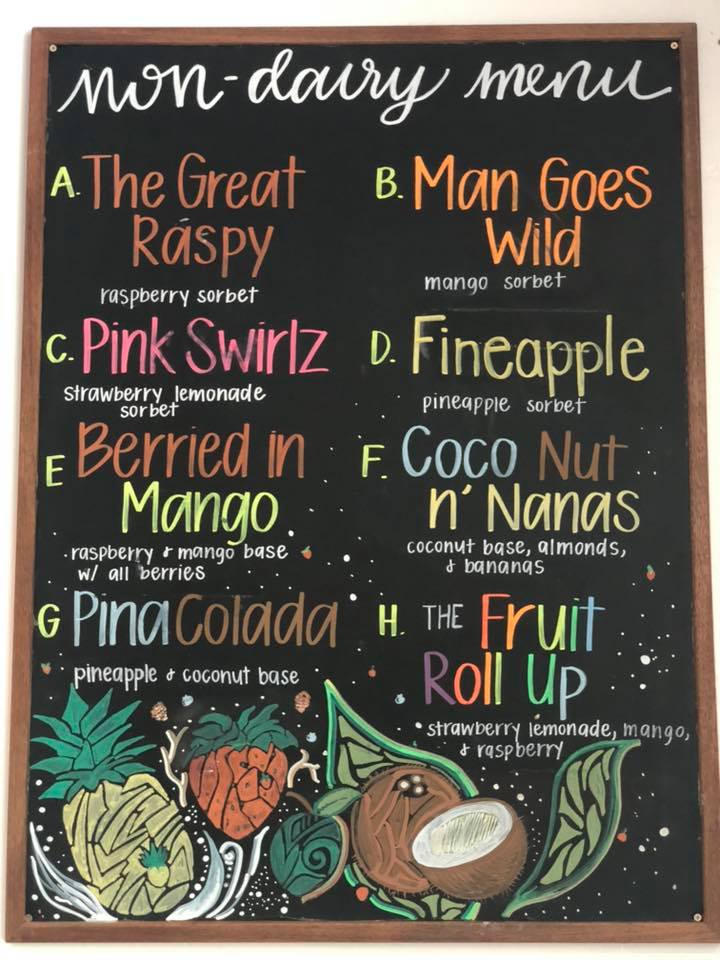 non-dairy menu
A. The Great
Raspy
raspberry sorbet
B. Man Goes
Wild
mango sorbet
C. Pink Swirlz
strawberry lemonade
sorbet
D. Fineapple
pineapple sorbet
E Berried in
Mango
raspberry & mango base
w/ all berries
F. Coco Nut
n' Nanas
coconut base, almonds,
& bananas
G Pina Colada
pineapple & coconut base
H. THE Fruit
Roll Up
strawberry lemonade, mango,
& raspberry